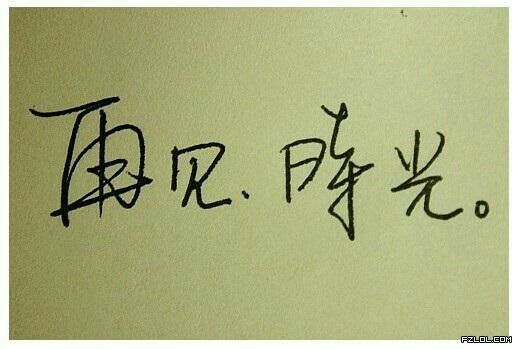 再见、時光。
PZLOL.COM